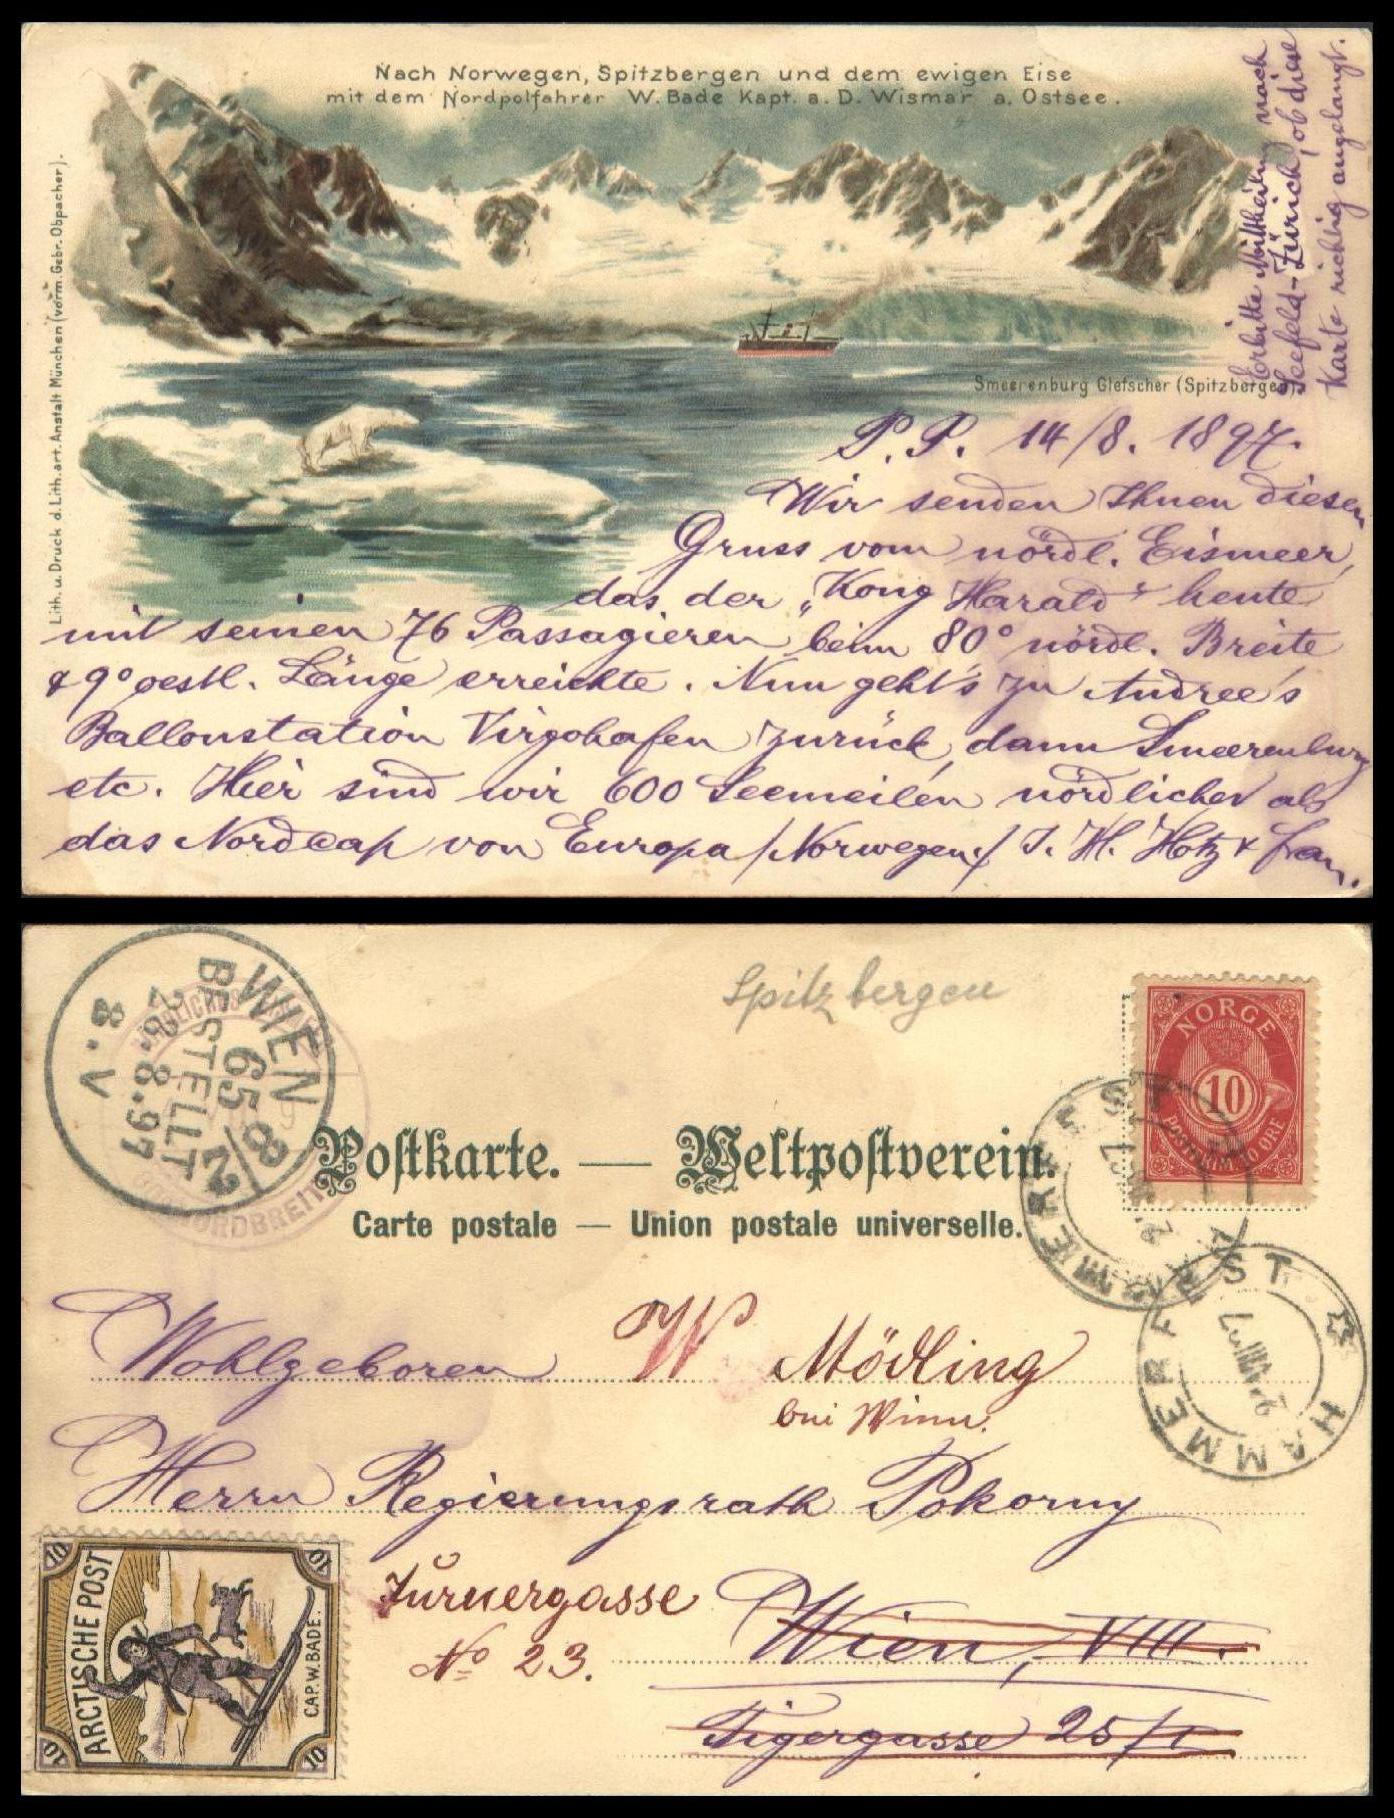 Nach Norwegen, Spitzbergen und dem ewigen Eise
mit dem Nordpolfahrer W. Bade Kapt. a. D. Wismar a. Ostsee.
Lith. u. Druck d. Lith. art. Anstalt München (vorm. Gebr. Obpacher).
Smeerenburg Gletscher (Spitzbergen)
Erbitte Mittheilung nach
Seefeld-Zürich, ob diese
Karte richtig angelangt.
P. P. 14/8. 1897.
Wir senden Ihnen diesen
Gruss vom nördl. Eismeer,
das der „Kong Harald" heute
mit seinen 76 Passagieren beim 80° nördl. Breite
& 9° oestl. Länge erreichte. Nun geht's zu Andree's
Ballonstation Virgohafen zurück, dann Smeerenburg
etc. Hier sind wir 600 Seemeilen nördlicher als
das Nordcap von Europa /Norwegen./ J. H. Hotz & Frau.
Spitzbergen
WIEN 8/2
65
BESTELLT
26.8.97
8.V
NORDBREITE
NORGE
10
POSTFRIM. 10 ØRE
HAMMERFEST
HAMMERFEST
Postkarte. — Weltpostverein.
Carte postale — Union postale universelle.
Wohlgeboren W Mödling
bei Wien.
Herrn Regierungsrath Pokorny
Turnergasse Wien, VIII.
No 23.
Tigergasse 25/I
10 10
ARCTISCHE POST
CAP. W. BADE.
10 10